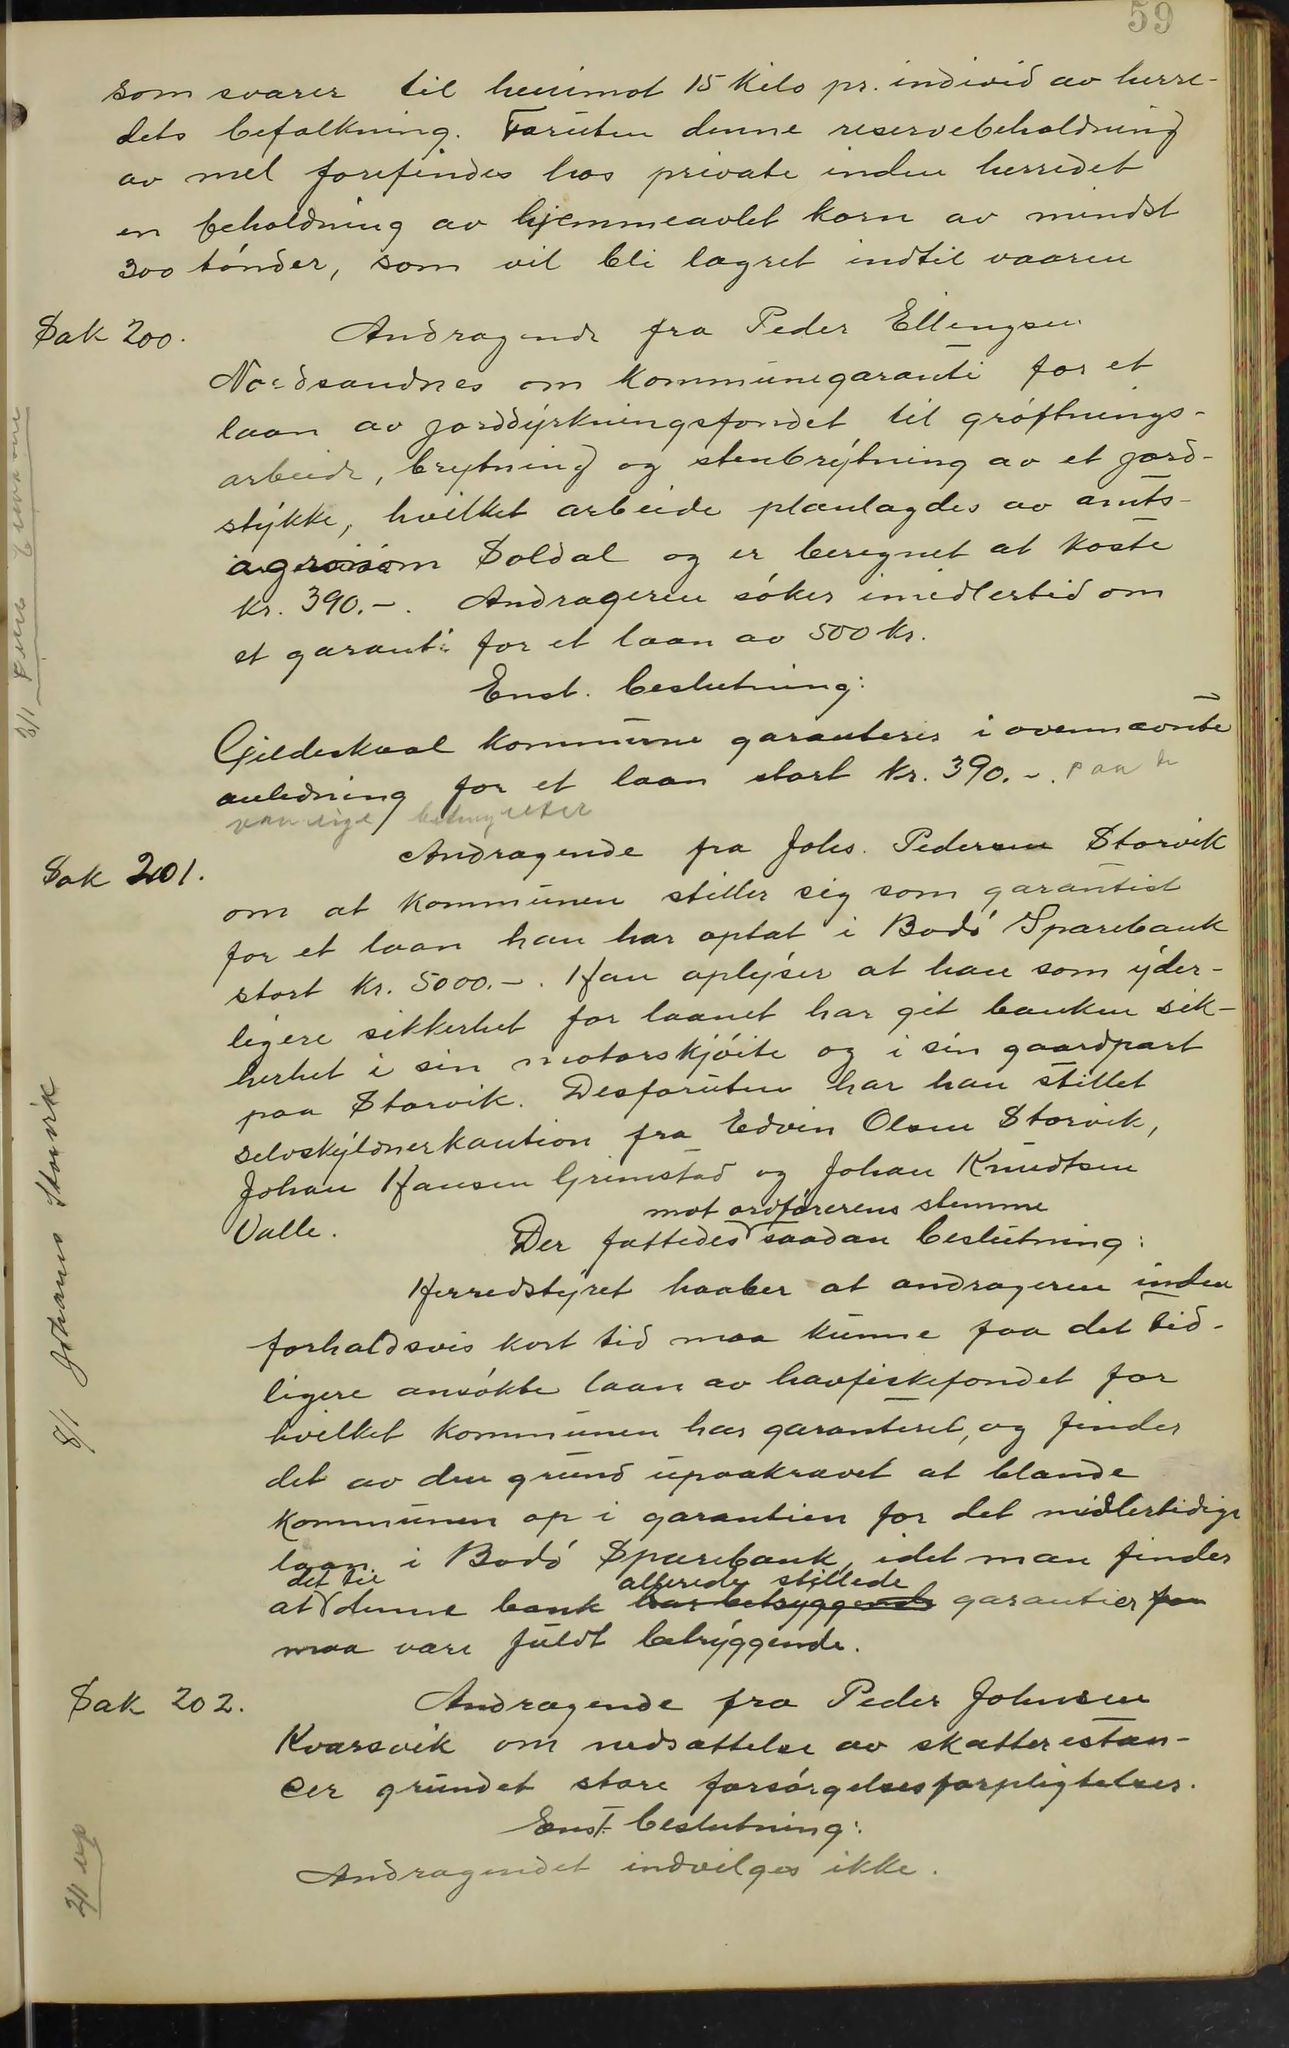 59
som svarer til henimot 15 kilo pr. individ av herre-
dets befolkning. Foruten denne reservebeholdning
av mel forefindes hos private inden herredet
en beholdning av hjemmeavlet korn av mindst
300 tónder, som vil bli lagret indtil vaaren
Sak 200. Andragende fra Peder Ellengsen
Nordsandnes om kommunegaranti for et
laan av jorddyrkningsfondet til gróftnings-
arbeide, brytning og stenbrytning av et jord-
stykke, hvilket arbeide planlagdes av amts-
agronom Soldal og er beregnet at koste
kr. 390.-. Andrageren sóker imidlertid om
et garanti for et laan av 500 kr.
Enst. beslutning:
Gildeskaal kommune garanterer i ovennævnte
anledning for et laan stort kr. 390.-. paa de
vanlige betingelser
Sak 201. Andragende fra Johs. Pedersen Storvik
om at kommunen stiller sig som garantist
for et laan han har optat i Bodó Sparebank
stort kr. 5000.-. Han oplyser at han som yder-
ligere sikkerhet for laanet har git banken sik-
herhet i sin motorskjóite og i sin gaardpart
paa Storvik. Desforuten har han stillet
selvskyldnerkaution fra Edvin Olsen Storvik,
Johan Hansen Grimstad og Johan Knudtsen
Valle.
mot ordfórerens stemme
Der fattedes saadan beslutning:
Herredstyret haaber at andrageren inden
forholdsvis kort tid maa kunne faa det tid-
ligere ansókte laan av havfiskefondet for
hvilket kommunen har garanteret, og finder
det av den grund upaakrævet at blande
kommunen op i garantien for det midlertidige
laan i Bodó Sparebank, idet man finder
det til allerede stillede
at denne bank har betryggende garantier for
maa være fuldt betryggende.
Sak 202. Andragende fra Peder Johnsen
Kvarsvik om nedsættelse av skatterestan-
cer grundet store forsórgelsesforpligtelser.
Enst. beslutning:
Andragendet indvilges ikke.
8/1 Johans Storvik